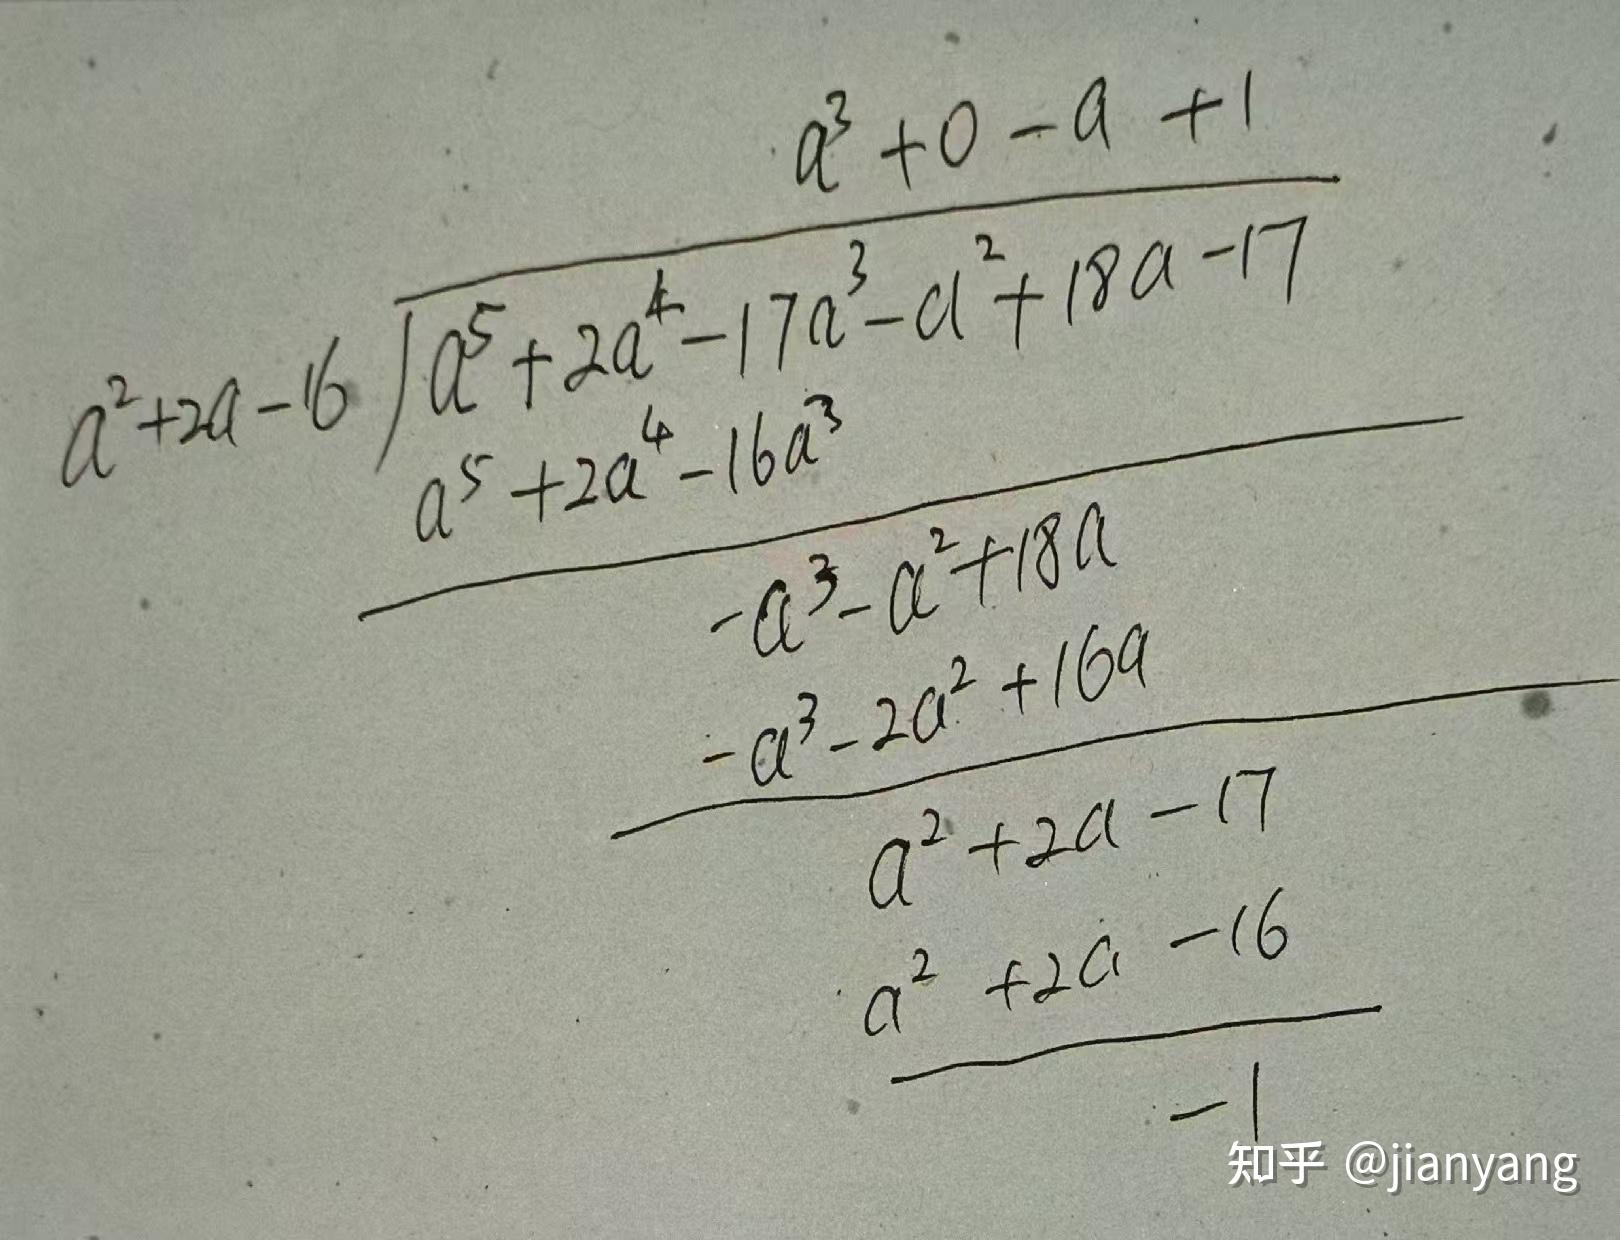 a³ + 0 - a + 1
a² + 2a - 16 ) a⁵ + 2a⁴ - 17a³ - a² + 18a - 17
a⁵ + 2a⁴ - 16a³
- a³ - a² + 18a
- a³ - 2a² + 16a
a² + 2a - 17
a² + 2a - 16
- 1
知乎 @jianyang